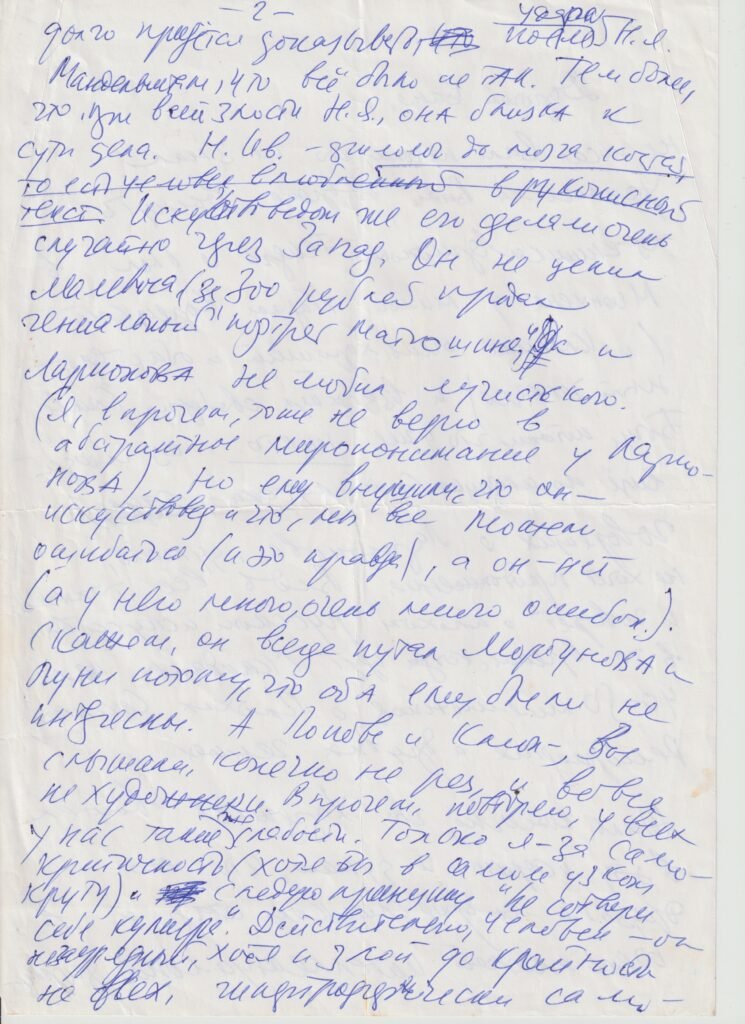 — 2 —
долго придётся доказывать, после удара Н.Я.
Мандельштам, что всё было не так. Тем более,
что, при всей злости Н.Я., она близка к
сути дела. Н. Ив. – филолог до мозга костей,
то есть человек влюбленный в рукописный
текст. Искусствоведом же его делали очень
случайно через Запад. Он не ценил
Малевича, (за 300 рублей продал
гениальный портрет Матюшина), и
Ларионова не любил лучистского.
(Я, впрочем, тоже не верю в
абстрактное миропонимание у Ларио-
нова). Но ему внушили, что он –
искусствовед и что, мы все можем
ошибаться (и это правда), а он – нет
(а у него много, очень много ошибок).
Скажем, он всегда путал Моргунова и
Пуни потому, что оба ему были не
интересны. А Попова и Клюн –, Вы
слышали, конечно не раз, и вовсе
не художники. Впрочем, повторяю, у всех
у нас такие же слабости. Только я – за само-
критичность (хотя бы в самом узком
кругу) и следую принципу "не сотвори
себе кумира". Действительно, человек – он
незаурядный, хотя и злой до крайности
не всех, само-